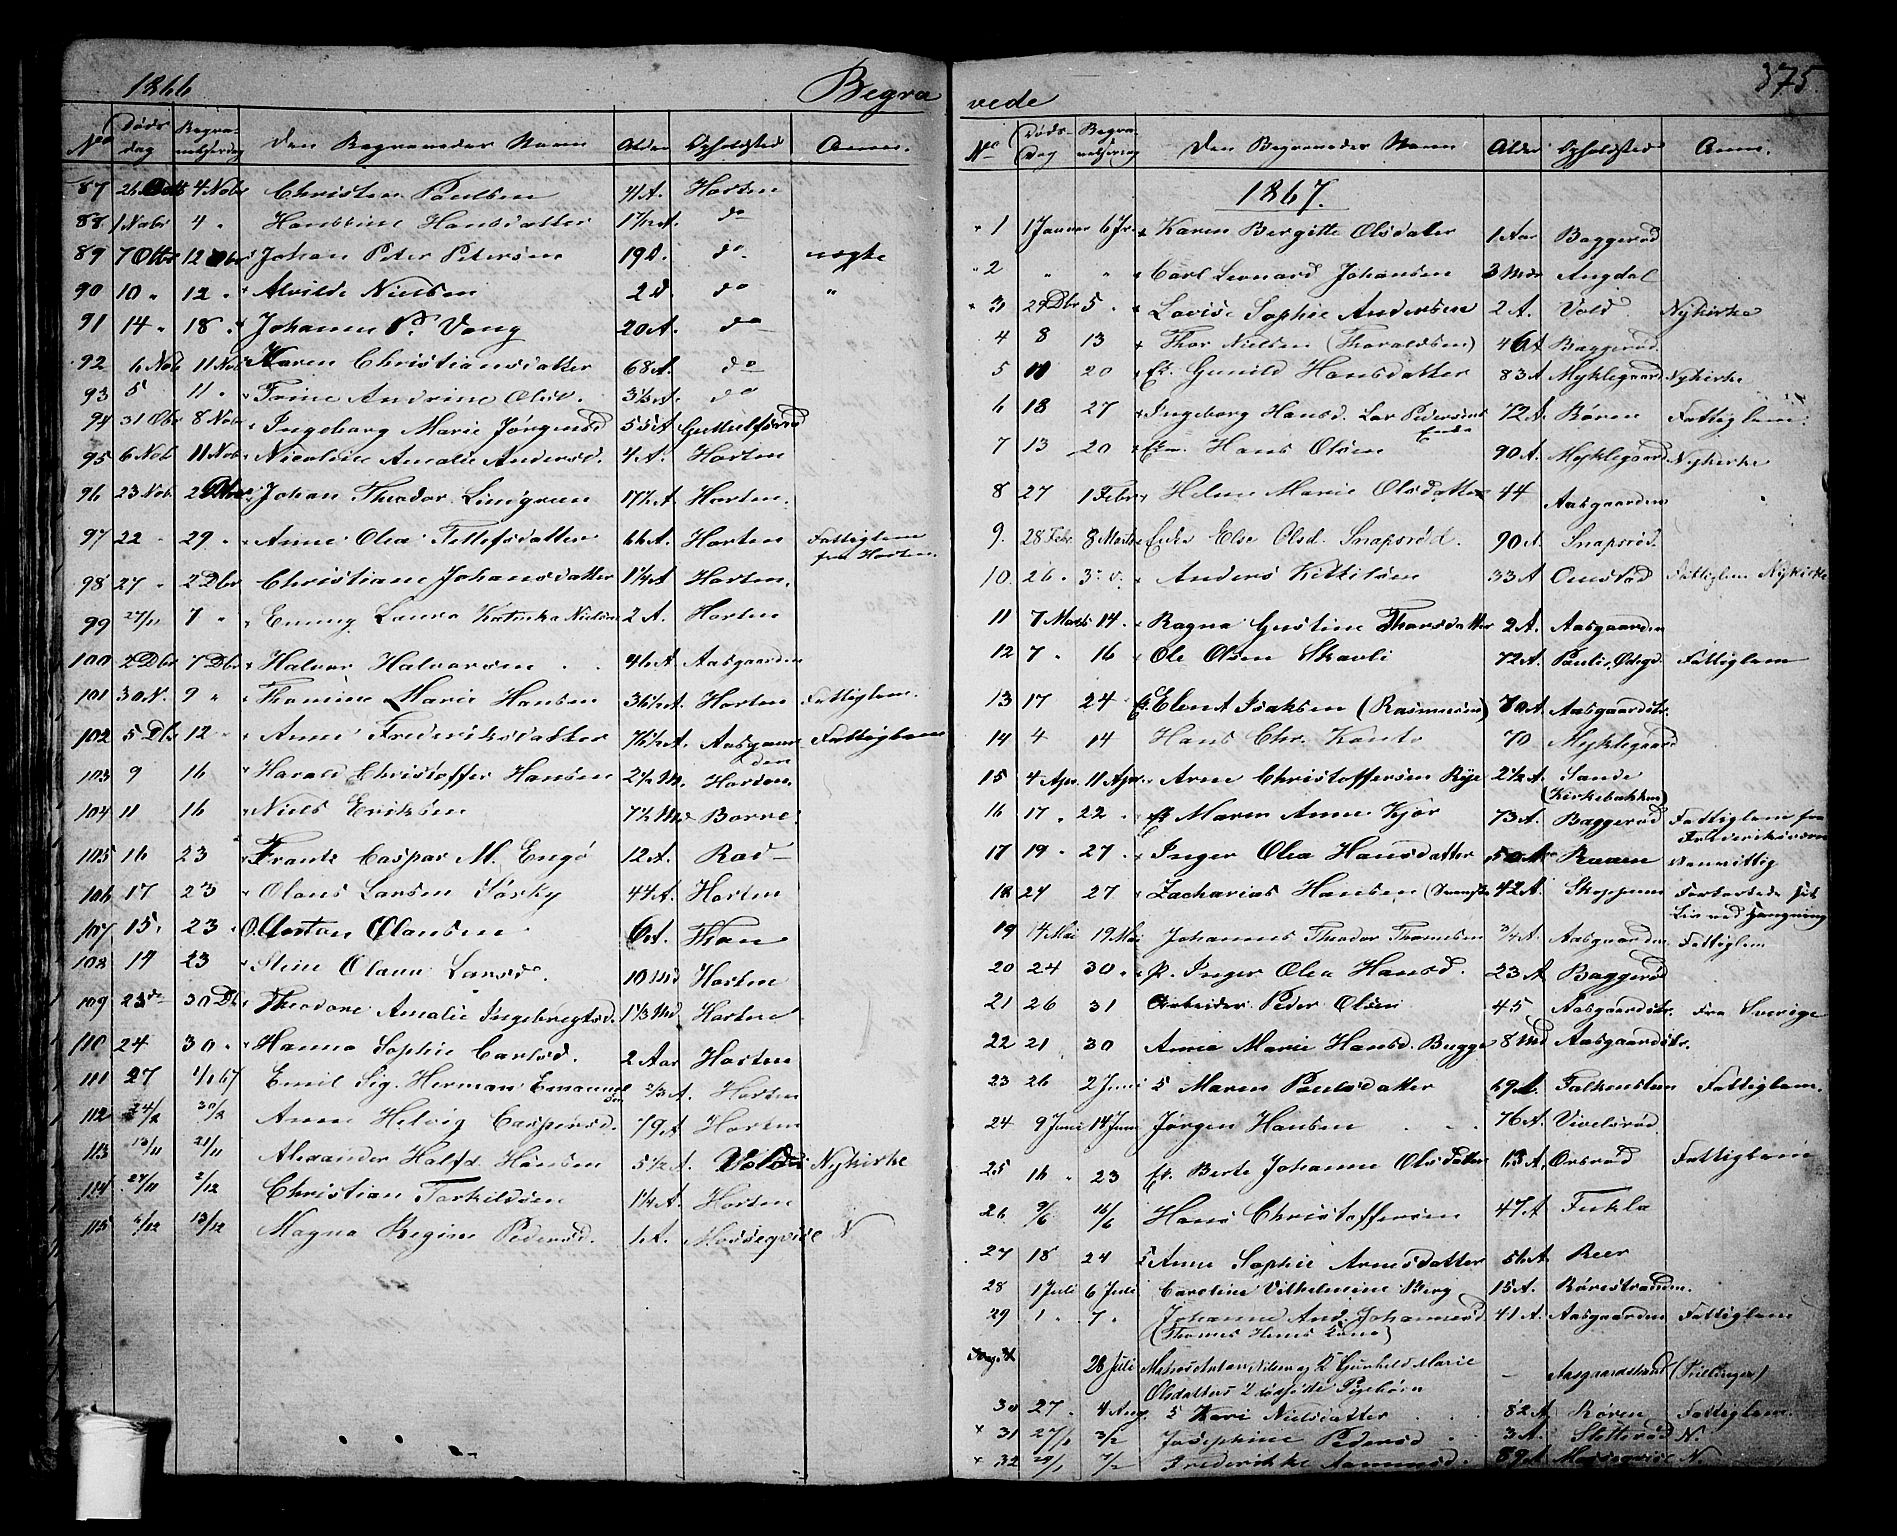 1866 Begra
No Døds dag Begravelsesdag Den Begravedes Navn Alder Opholdsted Anm.
87 26 4 Nobr Christen Paulsen 41 A. Horten
88 1 Nobr 4 " Hansine Hansdatter 1 7/12 A. do
89 7 Otbr 12 Johan Peter Petersen 19 D. do nøgte
90 10 " 12 " Alvilde Nielsen 2 d. do "
91 14 " 18 " Johanne P. Vong 20 A. do
92 6 Nob 11 Nob Karen Christiansdatter 68 A. do
93 5 11 " Trine Andrine Olsd. 3½ A. do
94 31 Obr 8 Nobr Ingeborg Marie Jørgensd 55 A
95 6 Nob 11 Nob Nicoline Amalie Andersd. 4 A. Horten
96 23 Nob. 2 Johan Theodor Lindgren 17½ A Horten.
97 22 " 29 " Anne Olea Tellefsdatter 66 A. Horten Fattiglem
fra Horten.
98 27 " 2 Dbr Christiane Johansdatter 1¼ A Horten.
99 27/11 7 " Emmy Laura Katinka Nielsen 2 A. Horten
100 2 Dbr 7 Dbr Halvor Halvorsen 46 A. Aasgaarden
101 30 N. 9 " Thomine Marie Hansen 36½ A. Horten Fattiglem.
102 5 Dbr 12 " Anne Frederiksdatter 76½ A. Aasgaar Fattiglem
den
103 9 16 Harald Christoffer Hansen 2½ M. Horten.
104 11 16 Niels Eriksen 7½ Md Borre.
105 16 23 Frants Caspar M. Engø 12 A. Rød
106 17 23 Olaus Larsen Sørby 44 A. Horten
107 15. 23 " O. Anton Olausen 6 A. Thon
108 19 23 Stine Olava Larsd. 10 Md Horten
109 23 de 30 Db Theodore Amalie Ingebregtsd. 1⅓ Md Horten
110 24 30 " Hanna Sophie Carlsd. 2 Aar Horten
111 27 4/1 67 Emil Sig. Herman Emanuel ⅔ A. Horten
sen
112 24/2 30/2 Anne Helvig Caspersd. 79 A Horten
113 13/11 21/11 Alexander Halfd. Hansen 5½ A. Volden Nykirke
114 27/11 2/12 Christian Torkildsen 1¼ A. Horten
115 6/12 13/12 Magna Regine Pedersd. 1 A. Mossegvise N
vede 375.
No Døds-Dag Begravelsesdag Den Begravedes Navn Alder Opholdsted Anm.
1867.
1 1 Januar 6 Jr. Karen Bergitte Olsdatter 1 Aar Baggerød
2 " " Carl Leonard Johansen 3 Mdr Angdal
3 29 Dbr 5 " Lovise Sophie Andersen 2 A. Vold Nykirke
4 8 13 Thor Nielsen (Thoraldsen) 46 A Baggerød.
5 10 20 Ek. Gunild Hansdatter 83 A Myklegaard Nykirke
6 18 27 Ingeborg Hansd. Lar Pedersens 72 A. Røren Fattiglem.
Enke
7 13 20 Ekm. Hans Olsen 90 A. Myklegaard Nykirke
8 27 1 Febr Helene Marie Olsdatter 44 Aasgaarden
9. 28 Febr. 8 Marts Enke Else Olsd. Snapsrød. 90 A. Snapsrød.
10. 26 " 3 Anders Kittilsen 33 A Fattiglem Nykirke
11 7 Marts 14. Ragna Gustine Thorsdatter 2 A. Aasgaarden
12 7 " 16 Ole Olsen Skavli 72 A. Fattiglem
13 17 24 E. Elend Isaksen (Rasmussen) 70 A. Aasgaardstr.
14 4 14 Hans Chr. Kanto 70 Myklegaard
15 4 Apr. 11 Apr. Arne Christoffersen Rye 2½ A. Sande
(Kirkebakken)
16 17 " 22 " Maren Anne Kjør 73 A. Baggerød Fattiglem fra
Frederiksværn
17 19 " 27 " Inger Olea Hansdatter 50 A Raaen vanvittig
18 24 27 Zacharias Hansen (Svenske 42 A. Skoppum Forkortede sit
Liv ved Hængning
19 14 Mai 19 Mai Johannes Theodor Thomesen ¾ A. Aasgaarden Fattiglem
20 24 30 " p. Inger Olea Hansd. 23 A Baggerød
21 26 31 Arbeider Peder Olsen 45 Aasgaardstr. Fra Sverige
22 21 30 Anne Marie Hansd. Bugge 8 Md Aasgaardstr.
23 26 2 Juni 5 Maren Paulsdatter 69 A. Falkensten Fattiglem.
24 9 Juni 14 Juni Jørgen Hansen 76 A. Vivelsrød.
25 16 " 23 Ek. Berte Johanne Olsdatter A. Ørsrød Fattiglem
26 9/6 16/6 Hans Christoffersen 47 A Fukla
27 18 24 5 Anne Sophie Arnesdatter 56 A. Reer
28 1 Juli 6 Juli Caroline Vilhelmine Berg 15 A. Rørestranden.
29 1 " 7 " Johanne And. Johannesd. 41 A. Aasgaarden Fattiglem
(Thomas Hanss Kone)
28 Juli Matros Anton Nilsen og P. Gunhild Marie Aasgaardstrand (Tvillinger)
Olsdatters 2 dødfødte Pigebørn
30 27 " 4 Aug. 5 Kari Nielsdatter 82 A. Røren Fattiglem.
31 27/1 3/2 Josephine Pedersd 3 A. Sletterød N.
32 29/1 7/2 Frederikke Aamundsd. 89 A Mossegvise N.